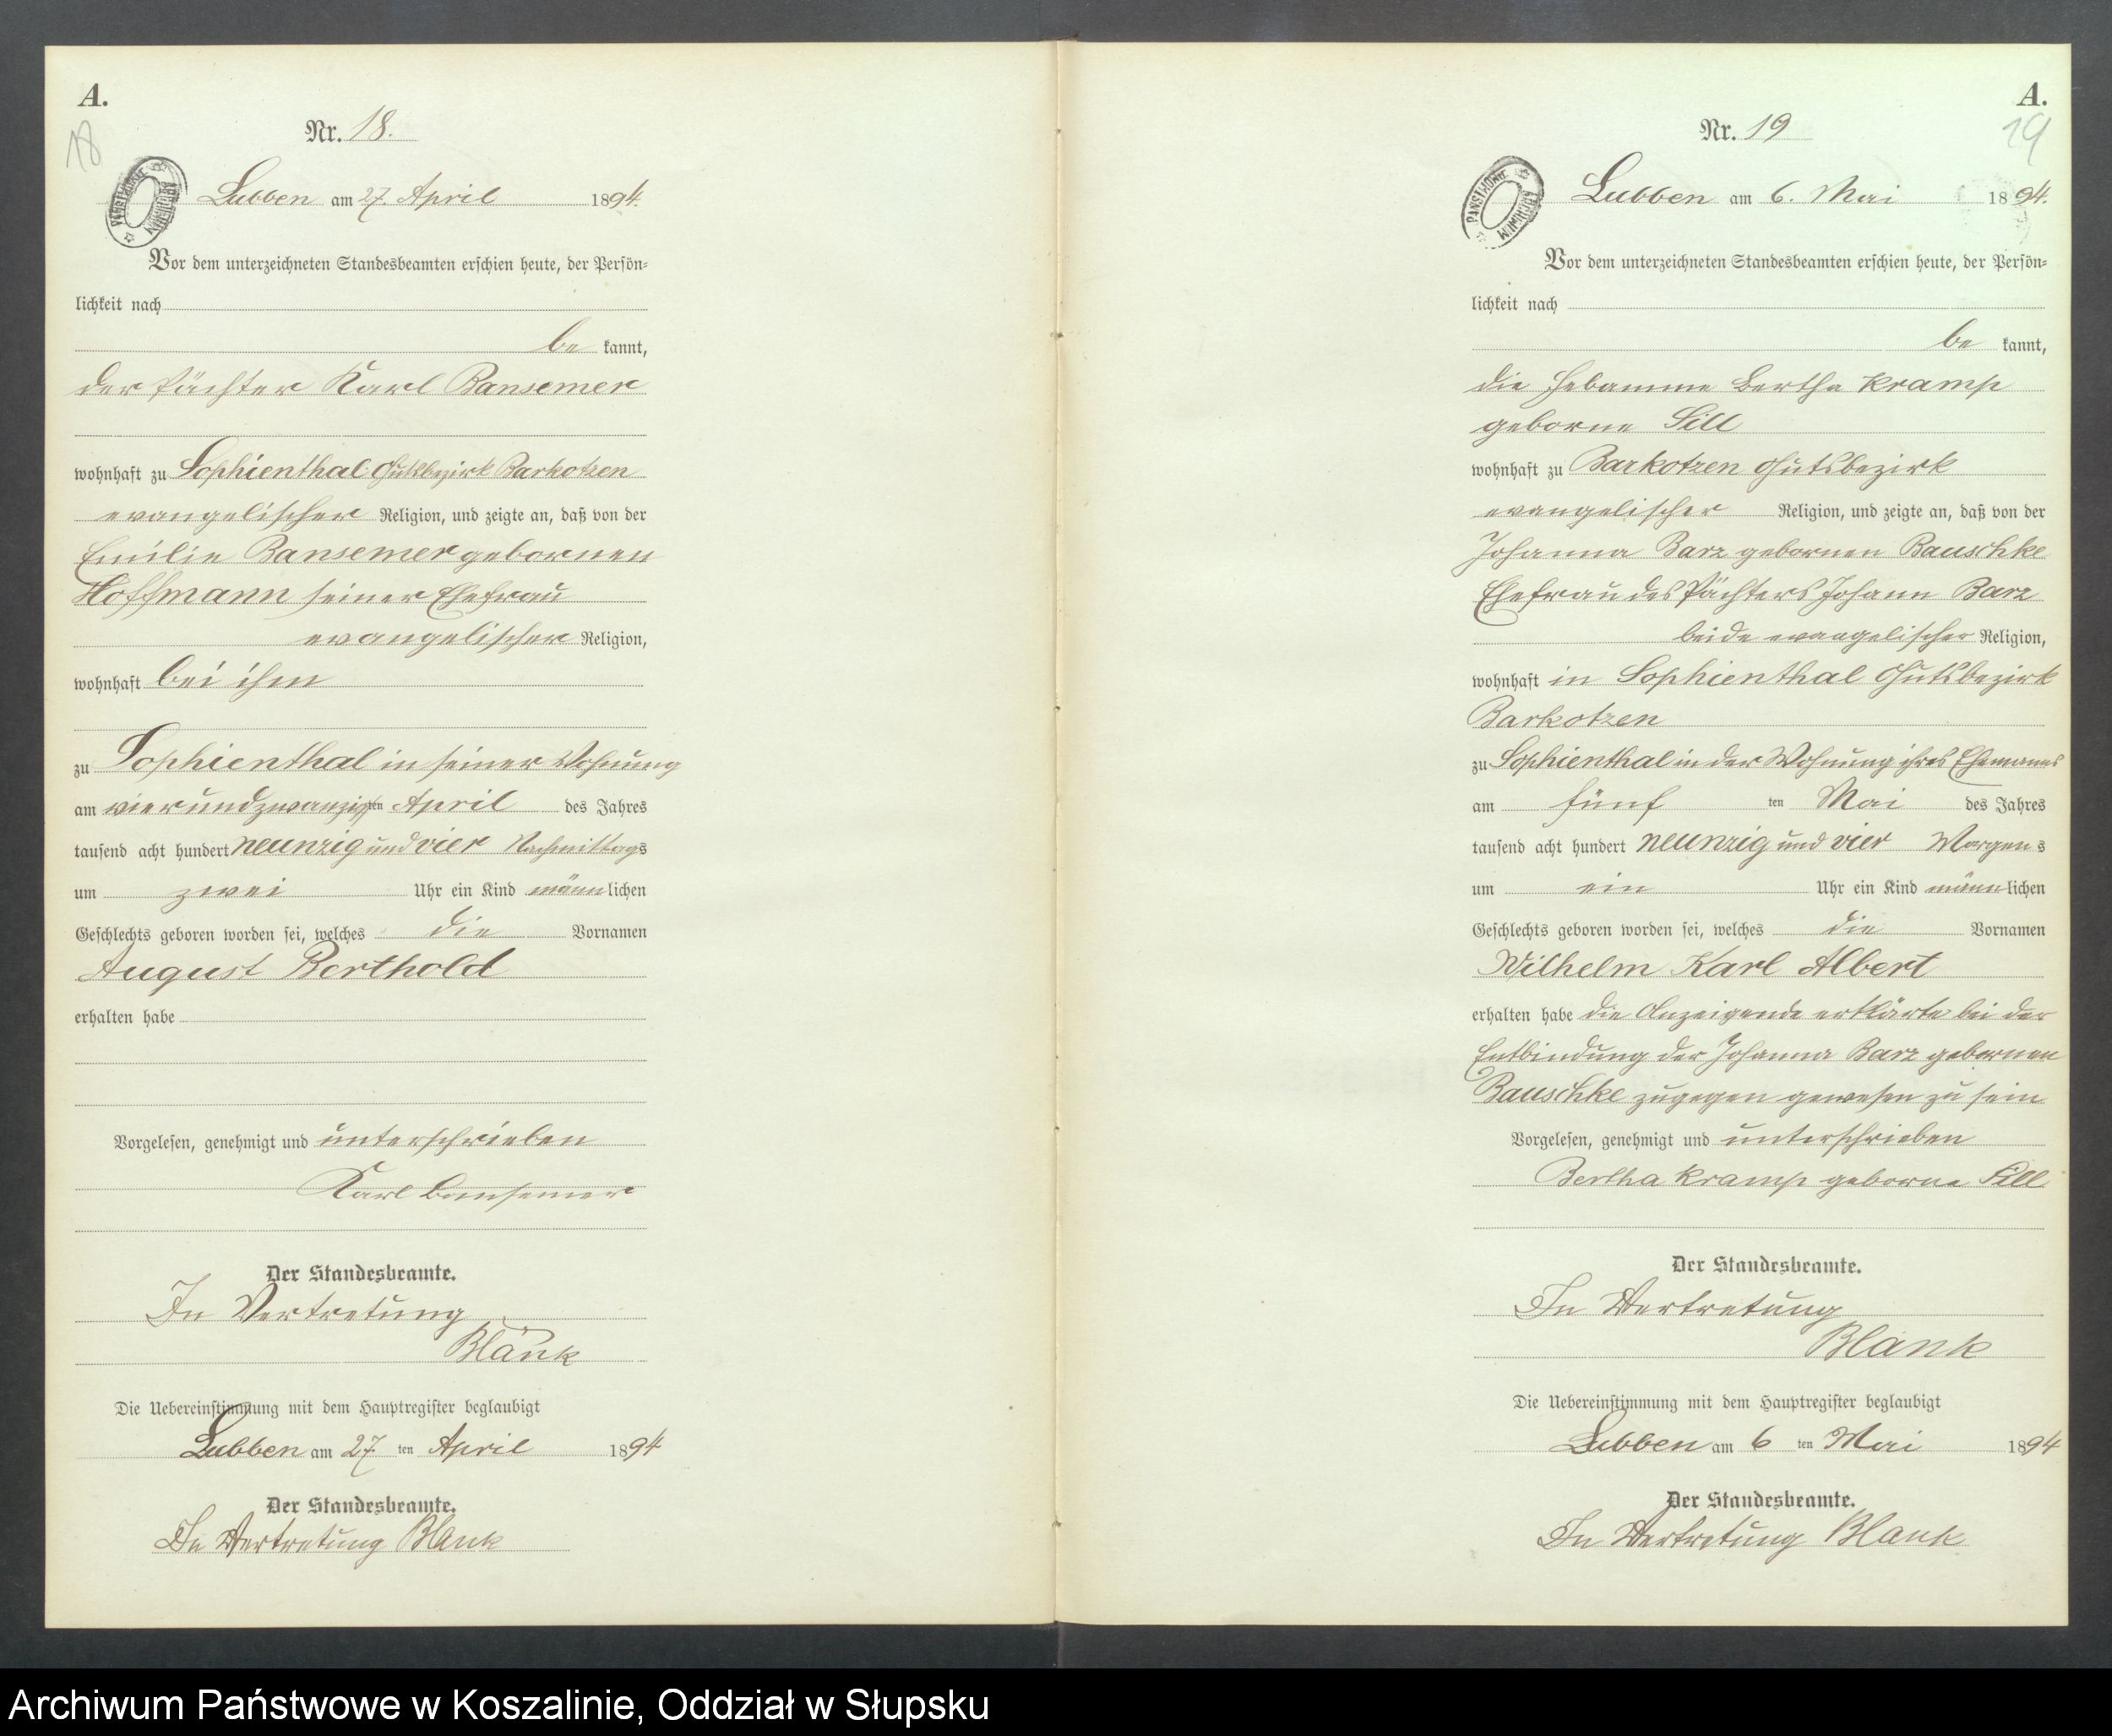 A.
18
Nr. 18.
PAŃSTWOWE ARCHIWUM
Lubben am 27. April 1894.
Vor dem unterzeichneten Standesbeamten erschien heute, der Persön-
lichkeit nach
be kannt,
der Pächter Karl Bansemer
wohnhaft zu Sophienthal Gutsbezirk Barkotzen
evangelischer Religion, und zeigte an, daß von der
Emilie Bansemer gebornen
Hoffmann seiner Ehefrau
evangelischer Religion,
wohnhaft bei ihm
zu Sophienthal in seiner Wohnung
am vierundzwanzigsten April des Jahres
tausend acht hundert neunzig und vier Nachmittags
um zwei Uhr ein Kind männlichen
Geschlechts geboren worden sei, welches die Vornamen
August Berthold
erhalten habe
Vorgelesen, genehmigt und unterschrieben
Karl Bansemer
Der Standesbeamte.
In Vertretung
Blank
Die Uebereinstimmung mit dem Hauptregister beglaubigt
Lubben am 27 ten April 1894
Der Standesbeamte.
In Vertretung Blank
A.
19
Nr. 19
PAŃSTWOWE ARCHIWUM
Lubben am 6. Mai 1894.
Vor dem unterzeichneten Standesbeamten erschien heute, der Persön-
lichkeit nach
be kannt,
die Hebamme Bertha Kramp
geborne Sill
wohnhaft zu Barkotzen Gutsbezirk
evangelischer Religion, und zeigte an, daß von der
Johanna Barz gebornen Bauschke
Ehefrau des Pächters Johann Barz
beide evangelischer Religion,
wohnhaft in Sophienthal Gutsbezirk
Barkotzen
zu Sophienthal in der Wohnung ihres Ehemanns
am fünf ten Mai des Jahres
tausend acht hundert neunzig und vier Morgens
um ein Uhr ein Kind männlichen
Geschlechts geboren worden sei, welches die Vornamen
Wilhelm Karl Albert
erhalten habe die Anzeigende erklärte bei der
Entbindung der Johanna Barz gebornen
Bauschke zugegen gewesen zu sein
Vorgelesen, genehmigt und unterschrieben
Bertha Kramp geborne Sill
Der Standesbeamte.
In Vertretung
Blank
Die Uebereinstimmung mit dem Hauptregister beglaubigt
Lubben am 6 ten Mai 1894
Der Standesbeamte.
In Vertretung Blank
Archiwum Państwowe w Koszalinie, Oddział w Słupsku